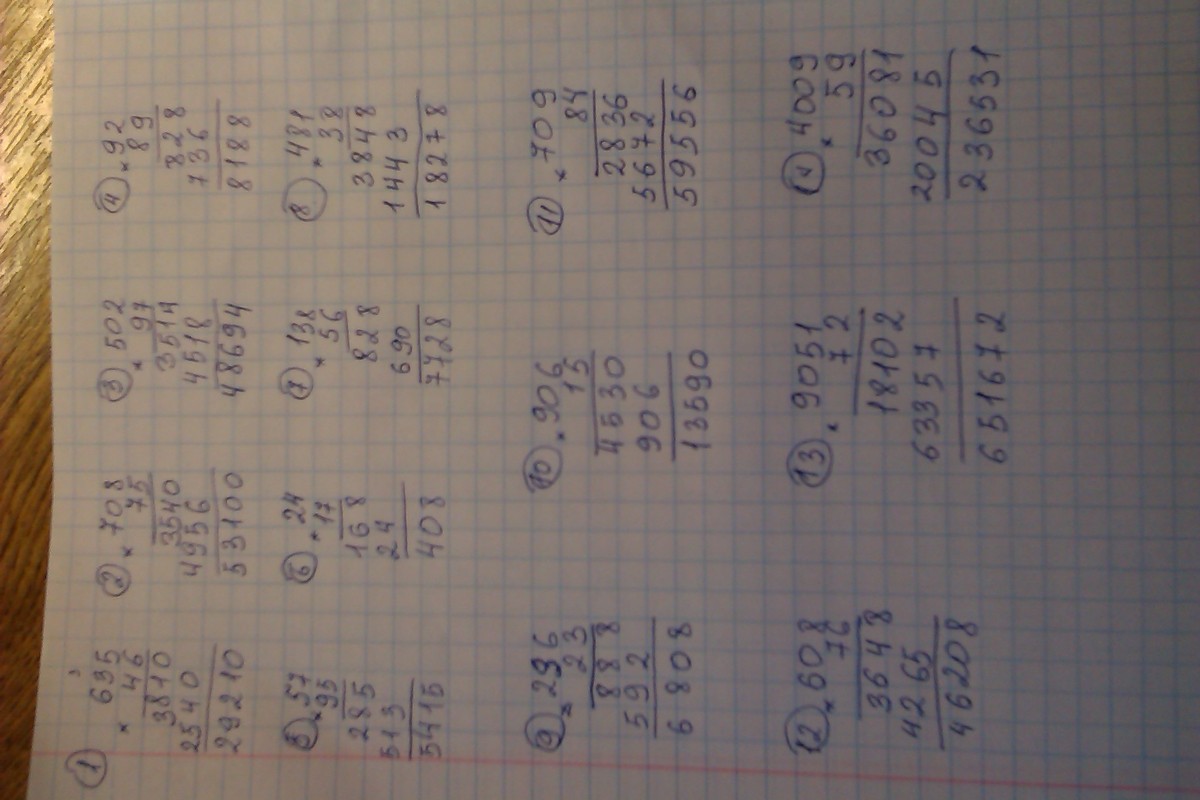 ① ② ③ ④
3
× 635 × 708 × 502 × 92
46 75 97 89
3810 3540 3514 828
2540 4956 4518 736
29210 53100 48694 8188
⑤ ⑥ ⑦ ⑧
× 57 × 24 × 138 × 481
95 17 56 38
285 168 828 3848
513 24 690 1443
5415 408 7728 18278
⑨ ⑩ ⑪
× 296 × 906 × 709
23 15 84
888 4530 2836
592 906 5672
6808 13590 59556
⑫ ⑬
× 608 × 9051 × 4009
76 72 59
3648 18102 36081
4265 63357 20045
46208 651672 236531